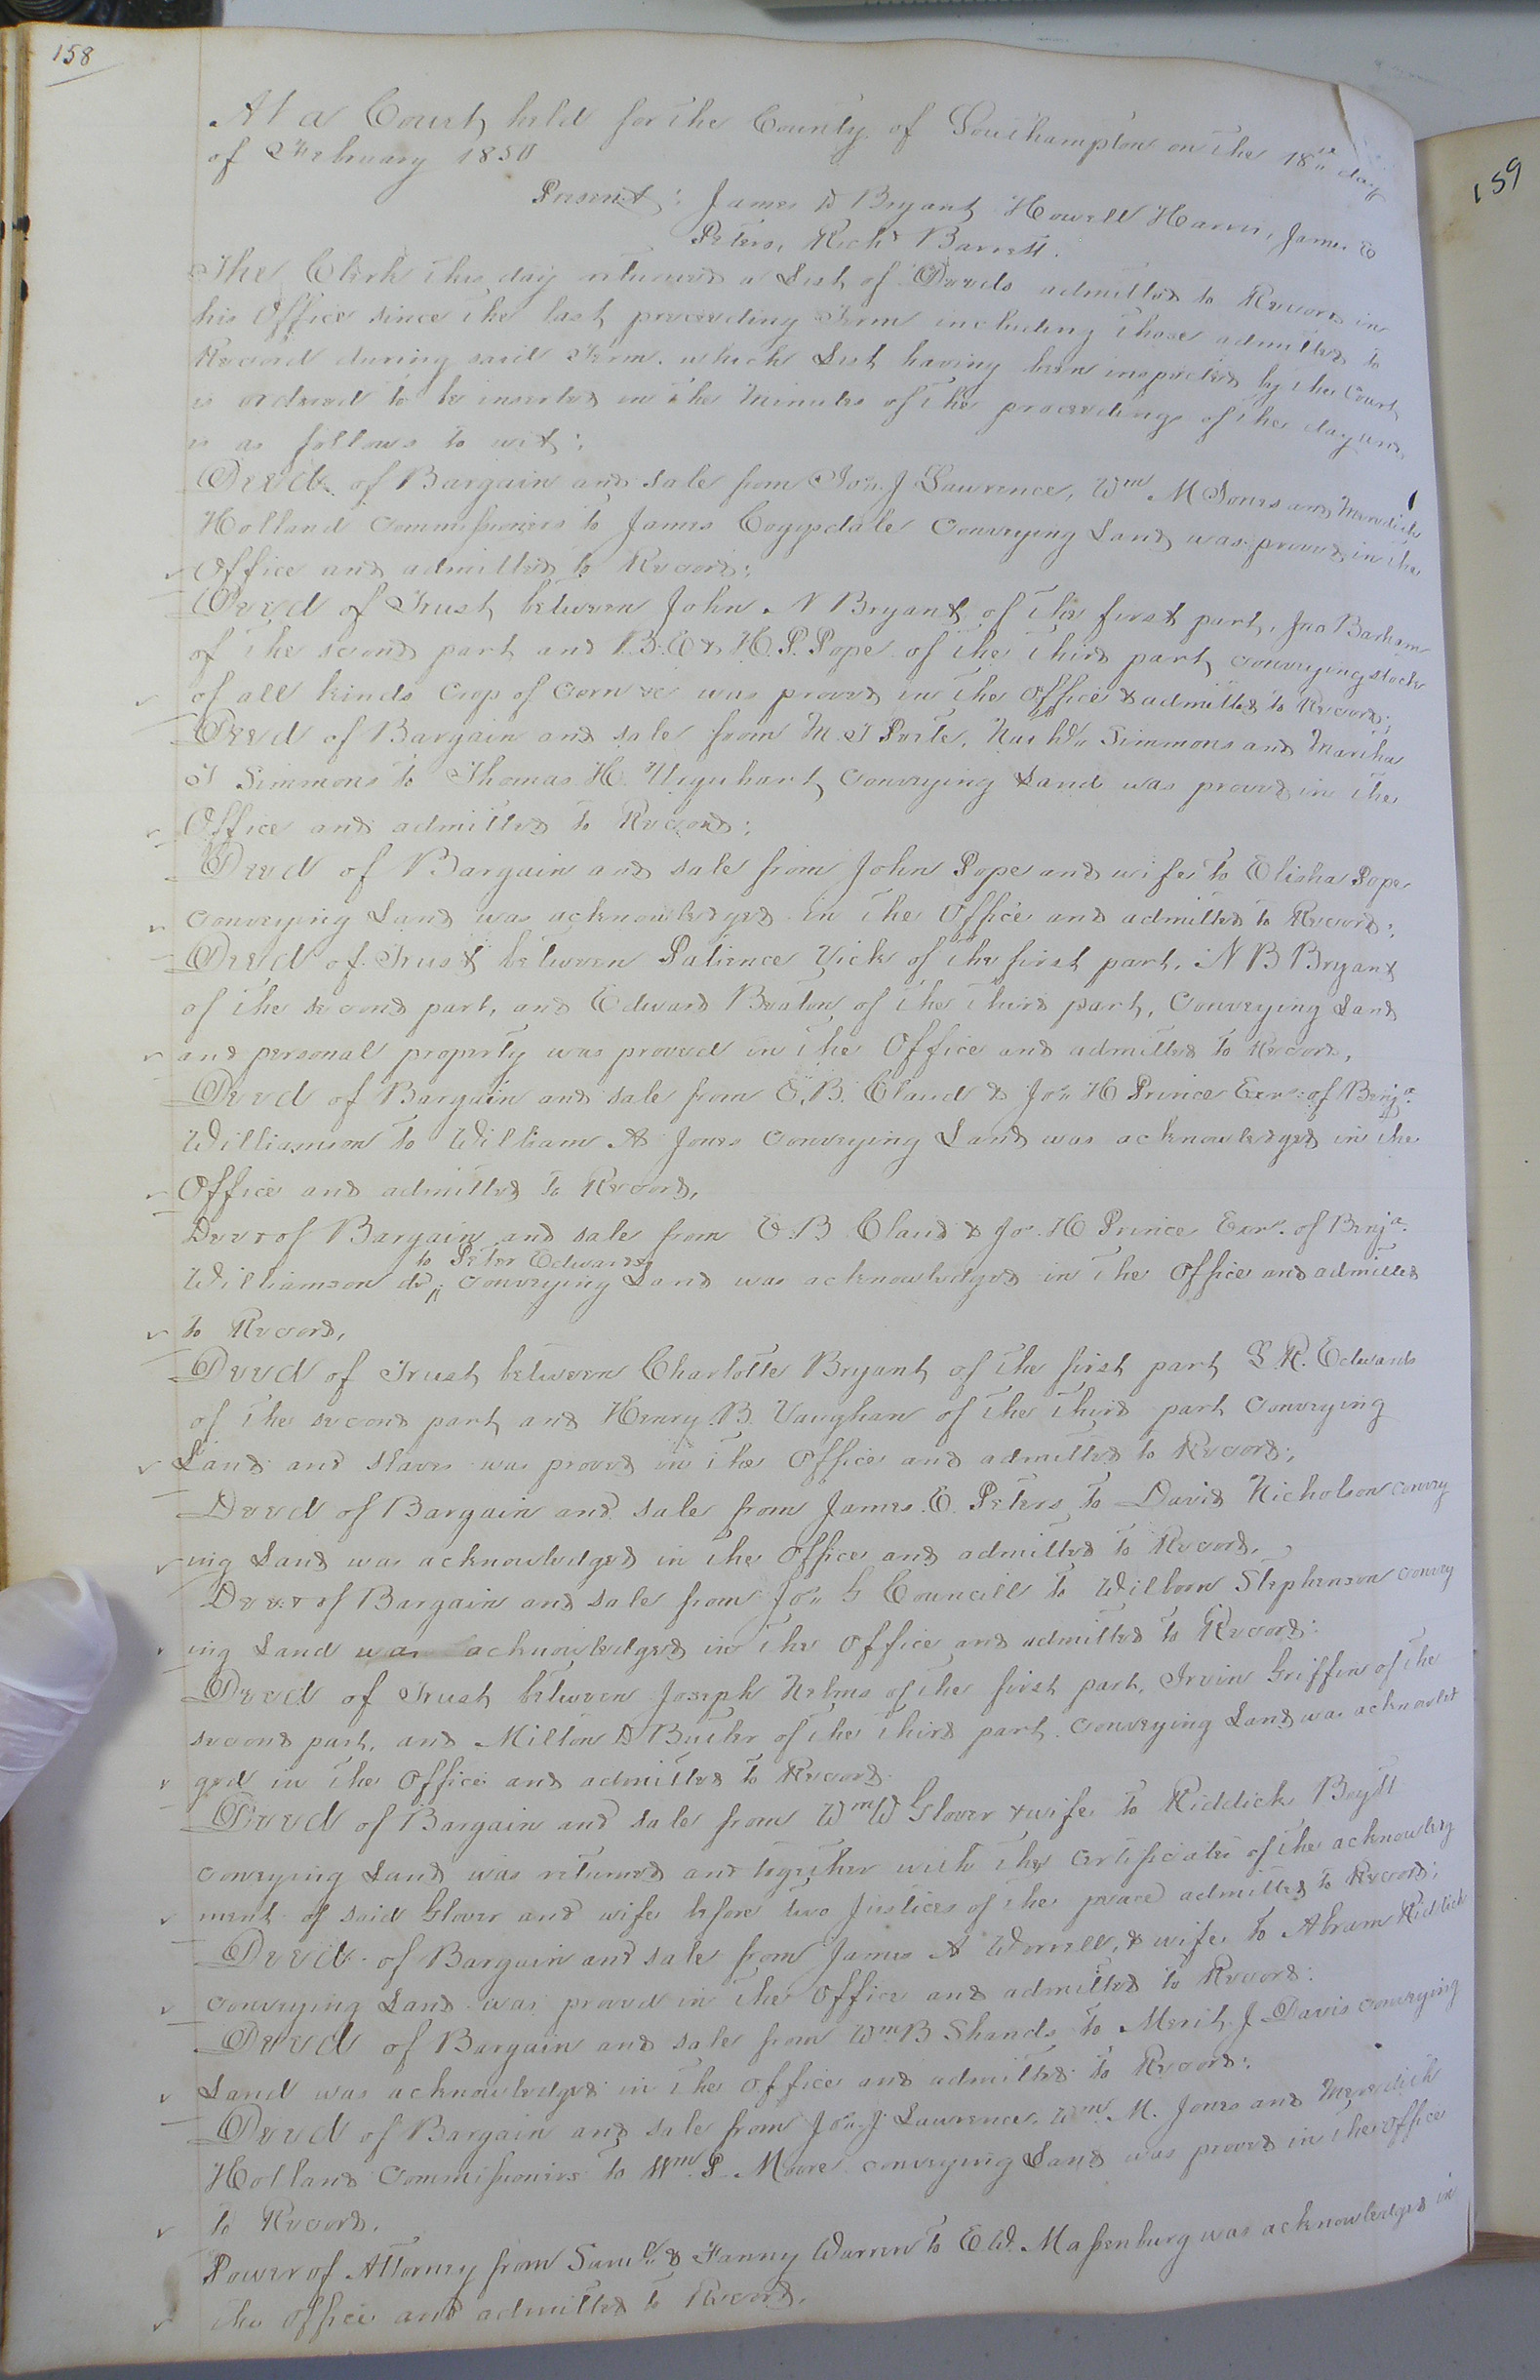 158
At a Court held for the County of Southampton on the 18th day
of February 1850
Present: James D Bryant Howell Harris, James E
Peters, Richd Barrett.
The Clerk this day returned a List of Deeds admitted to Record in
his Office since the last preceeding Term including those admitted to
Record during said Term. which List having been inspected by the Court
is ordered to be inserted in the Minutes of the proceedings of the day and
is as follows to wit:
Deed of Bargain and sale from Jos. J Lawrence, Wm M Jones and Meredith
Holland Commissioners to James Coggsdale Conveying Land was proved in the
Office and admitted to Record:
Deed of Trust between John N Bryant of the first part, Jno Barham
of the second part and B. E & H. P. Pope of the third part conveying stock
of all kinds Crop of Corn &c was proved in the Office & admitted to Record;
Deed of Bargain and sale from M. T Simmons and Martha
T Simmons to Thomas H. Urquhart Conveying Land was proved in the
Office and admitted to Record:
Deed of Bargain and sale from John Pope and wife to Elisha Pope
Conveying Land was acknowledged in the Office and admitted to Record:
Deed of Trust between Patience Vick of the first part, N B Bryant
of the second part, and Edward Beaton of the third part, Conveying Land
and personal property was proved in the Office and admitted to Record,
Deed of Bargain and sale from E. B. Claud & Jos. H Prince Exrs. of Benja.
Williamson to William A Jones Conveying Land was acknowledged in the
Office and admitted to Record,
Deed of Bargain and sale from E. B Claud & Jos. H Prince Exrs. of Benja.
to Peter Edwards
Williamson dec conveying Land was acknowledged in the Office and admitted
to Record,
Deed of Trust between Charlotte Bryant of the first part L. R. Edwards
of the second part and Henry B. Vaughan of the third part Conveying
Land and Slaves was proved in the Office and admitted to Record;
Deed of Bargain and sale from James E. Peters to David Nicholson convey
ing Land was acknowledged in the Office and admitted to Record.
Deed of Bargain and sale from Jos. G Councill to Wilborn Stephenson convey
ing Land was acknowledged in the Office and admitted to Record:
Deed of Trust between Joseph Helms of the first part, Irvin Griffin of the
second part, and Milton D Butler of the third part. Conveying Land was acknowled
ged in the Office and admitted to Record.
Deed of Bargain and sale from Wm W Glover & wife to Riddick Boyett
conveying Land was returned and together with the Certificate of the acknowledg
ment of said Glover and wife before two Justices of the peace admitted to Record;
Deed of Bargain and sale from James A Worrell, & wife to Abram Riddick
conveying Land was proved in the Office and admitted to Record:
Deed of Bargain and sale from Wm B Shands to Merit J Davis conveying
Land was acknowledged in the Office and admitted to Record:
Deed of Bargain and sale from Jos. J. Lawrence, Wm. M. Jones and Meredith
Holland Commissioners to Wm P. Moore conveying Land was proved in the Office
to Record.
Power of Attorney from Saml. & Fanny Warren to E. W. Massenburg was acknowledged in
the Office and admitted to Record.
159